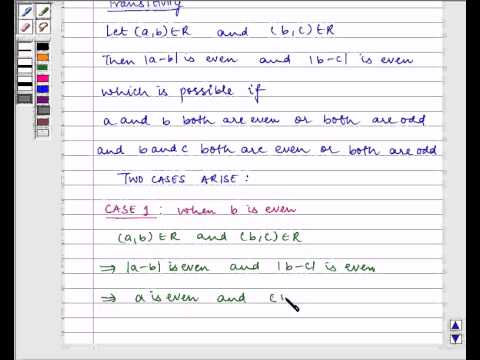 Transitivity
Let (a,b) ∈ R and (b,c) ∈ R
Then |a-b| is even and |b-c| is even
which is possible if
a and b both are even or both are odd
and b and c both are even or both are odd
TWO CASES ARISE:
CASE 1: when b is even
(a,b) ∈ R and (b,c) ∈ R
⇒ |a-b| is even and |b-c| is even
⇒ a is even and c i